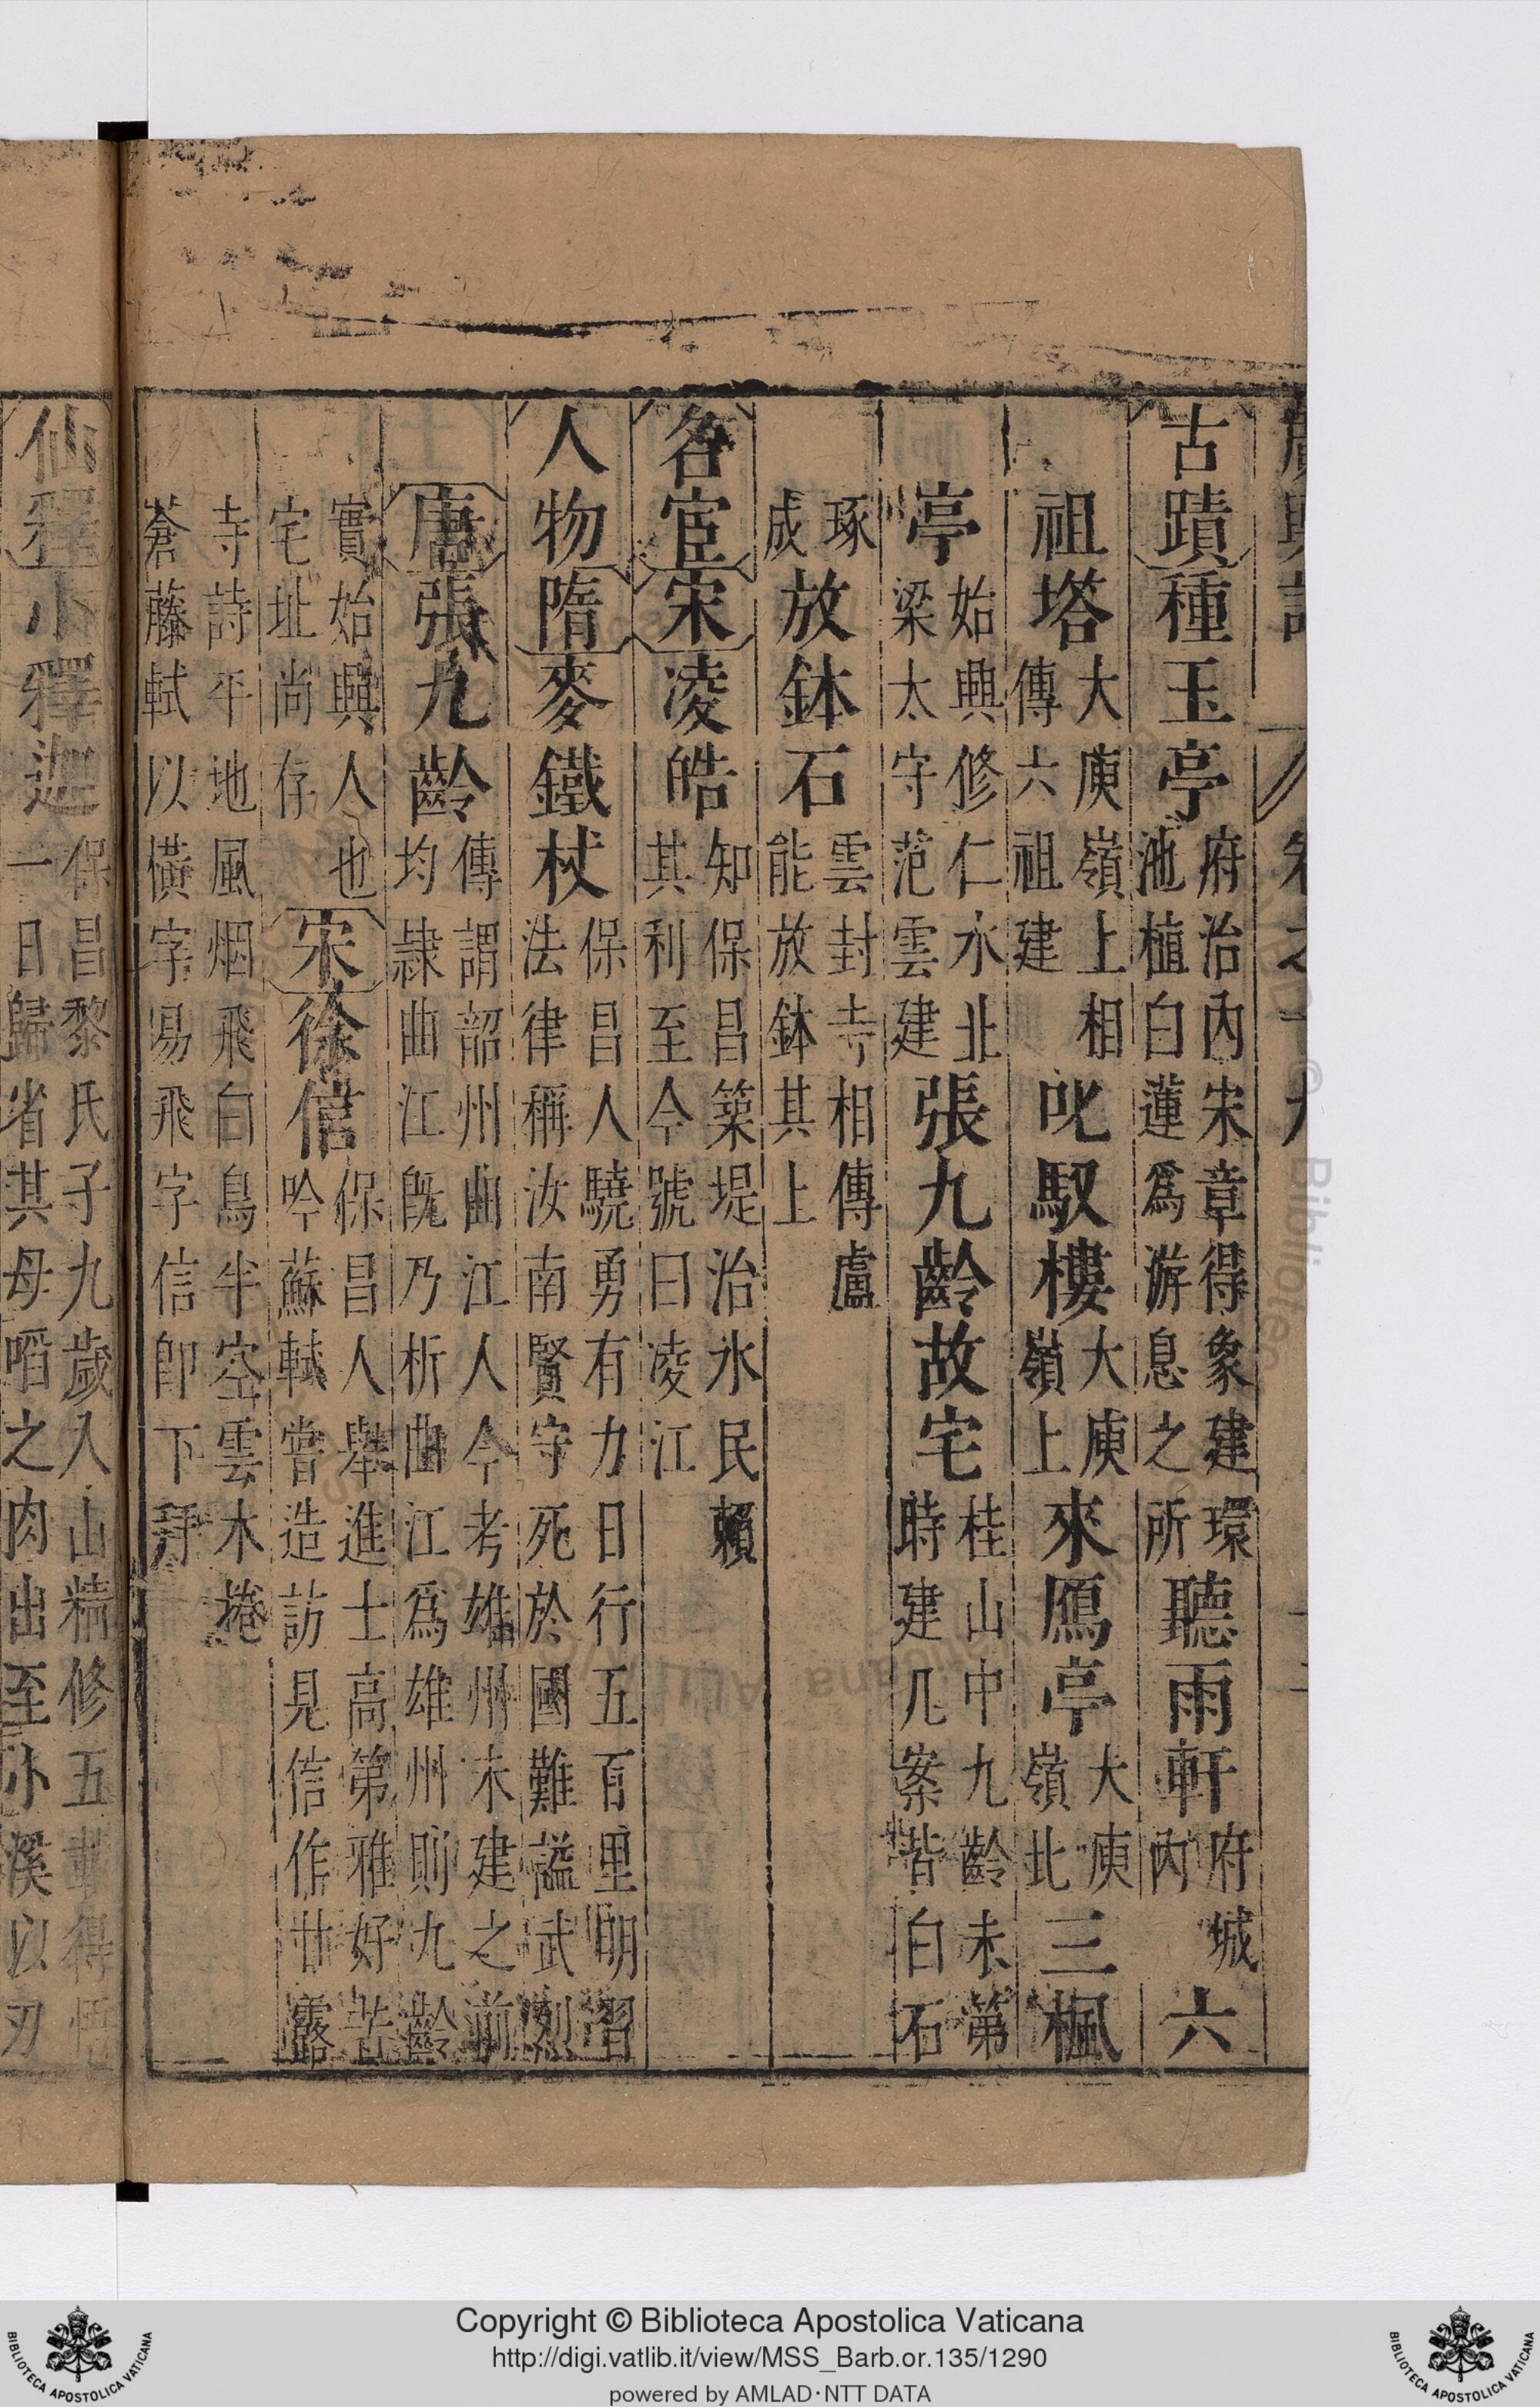 廣輿記 卷之十九
古蹟 種玉亭 府治內宋章得象建環池植白蓮爲游息之所 聽雨軒 府城內 六
祖塔 大庾嶺上相傳六祖建 叱馭樓 大庾嶺上 來鴈亭 大庾嶺北 三楓
亭 始興修仁水北梁太守范雲建 張九齡故宅 桂山中九齡未第時建几案皆白石
琢成 放鉢石 雲封寺相傳盧能放鉢其上
名宦 宋 凌皓 知保昌築堤治水民賴其利至今號曰凌江
人物 隋 麥鐵杖 保昌人驍勇有力日行五百里明習法律稱汝南賢守死於國難謚武烈
唐 張九齡 傳謂韶州曲江人今考雄州未建之前均隷曲江旣乃析曲江爲雄州則九齡
實始興人也宅址尚存 宋 徐信 保昌人舉進士高第雅好苦吟蘇軾嘗造訪見信作甘露
寺詩平地風烟飛白鳥半空雲木掩蒼藤軾以橫字易飛字信卽下拜
仙釋 小釋迦 保昌黎氏子九歲入山精修五載得悟一日歸省其母啗之肉出至小溪以刃
Copyright © Biblioteca Apostolica Vaticana
http://digi.vatlib.it/view/MSS_Barb.or.135/1290
powered by AMLAD·NTT DATA
BIBLIOTECA APOSTOLICA VATICANA
BIBLIOTECA APOSTOLICA VATICANA